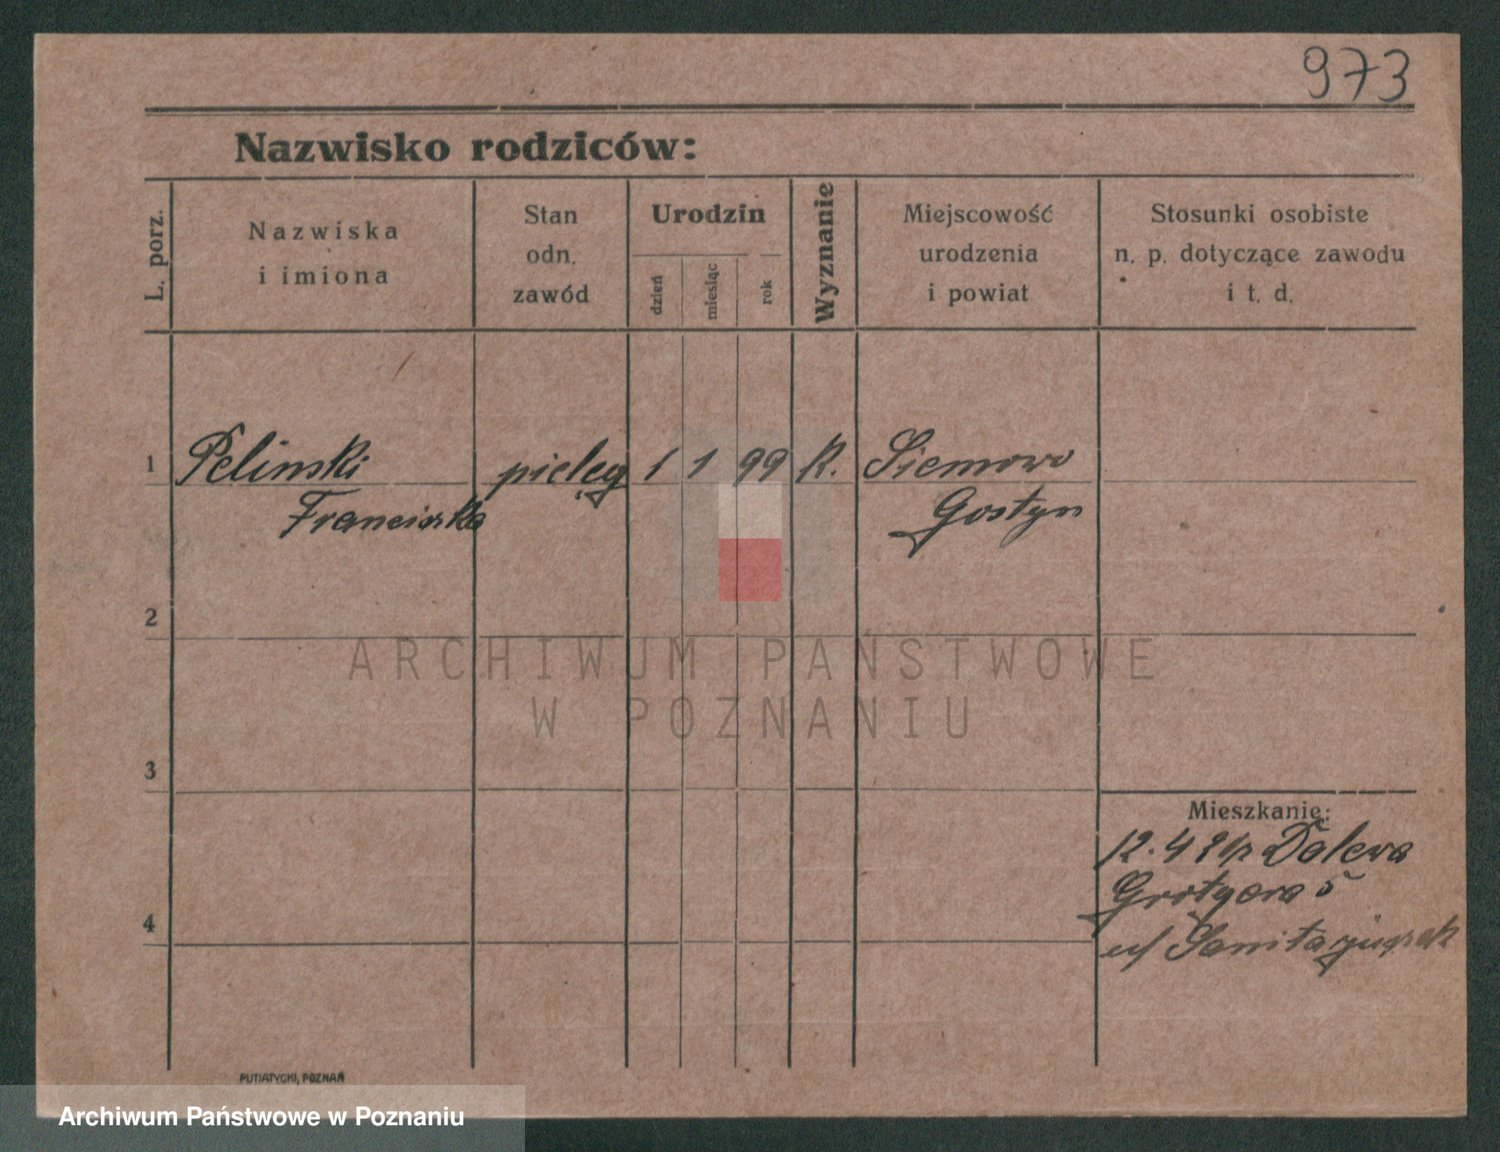 973
Nazwisko rodziców:
L. porz.
Nazwiska
i imiona
Stan
odn.
zawód
Urodzin
dzień
miesiąc
rok
Wyznanie
Miejscowość
urodzenia
i powiat
Stosunki osobiste
n. p. dotyczące zawodu
i t. d.
1
Pelinski
Franciszka
pieleg
1 1 99
k.
Siemowo
Gostyn
2
ARCHIWUM PAŃSTWOWE
W POZNANIU
3
4
Mieszkanie:
12.4 Dalewa
Grotgera 5
PUTIATYCKI, POZNAŃ
Archiwum Państwowe w Poznaniu